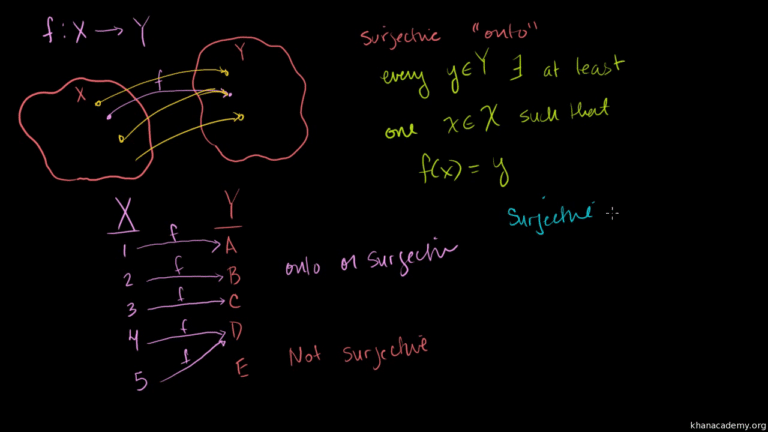 f : X → Y
surjective "onto"
every y ∈ Y ∃ at least
one x ∈ X such that
f(x) = y
X
f
Y
Surjective
X Y
1 f A
2 f B
3 f C
4 f D
5 f E
onto or surjectiv
Not surjective
khanacademy.org